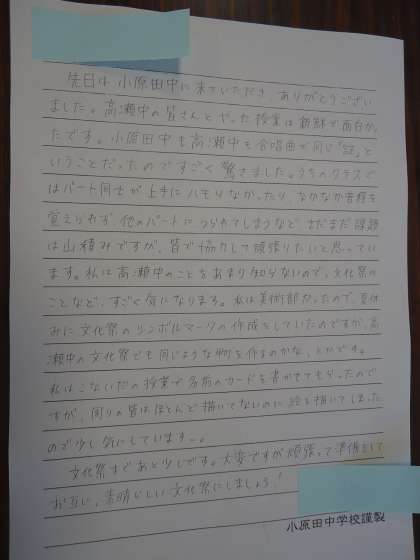 先日は小原田中に来ていただき、ありがとうござい
ました。高瀬中の皆さんとやった授業は新鮮で面白かっ
たです。小原田中も高瀬中も合唱曲が同じ「証」と
いうことだったのですごく驚きました。うちのクラスで
はパート同士が上手にハモりなかったり、なかなか音程を
覚えられず、他のパートにつられてしまうなど、まだまだ課題
は山積みですが、皆で協力して頑張りたいと思ってい
ます。私は高瀬中のことをあまり知らないので、文化祭の
ことなど、すごく気になります。私は美術部だったので、夏休
みに文化祭のシンボルマークの作成をしていたのですが、高
瀬中の文化祭でも同じような物を作るのかな、とかです。
私はこないだの授業で名前のカードを書かせてもらったので
すが、周りの皆はほとんど描いてないのに絵を描いてしまった
ので少し気にしています…。
文化祭まであと少しです。大変ですが頑張って準備をして
お互い、素晴らしい文化祭にしましょう！
小原田中学校謹製